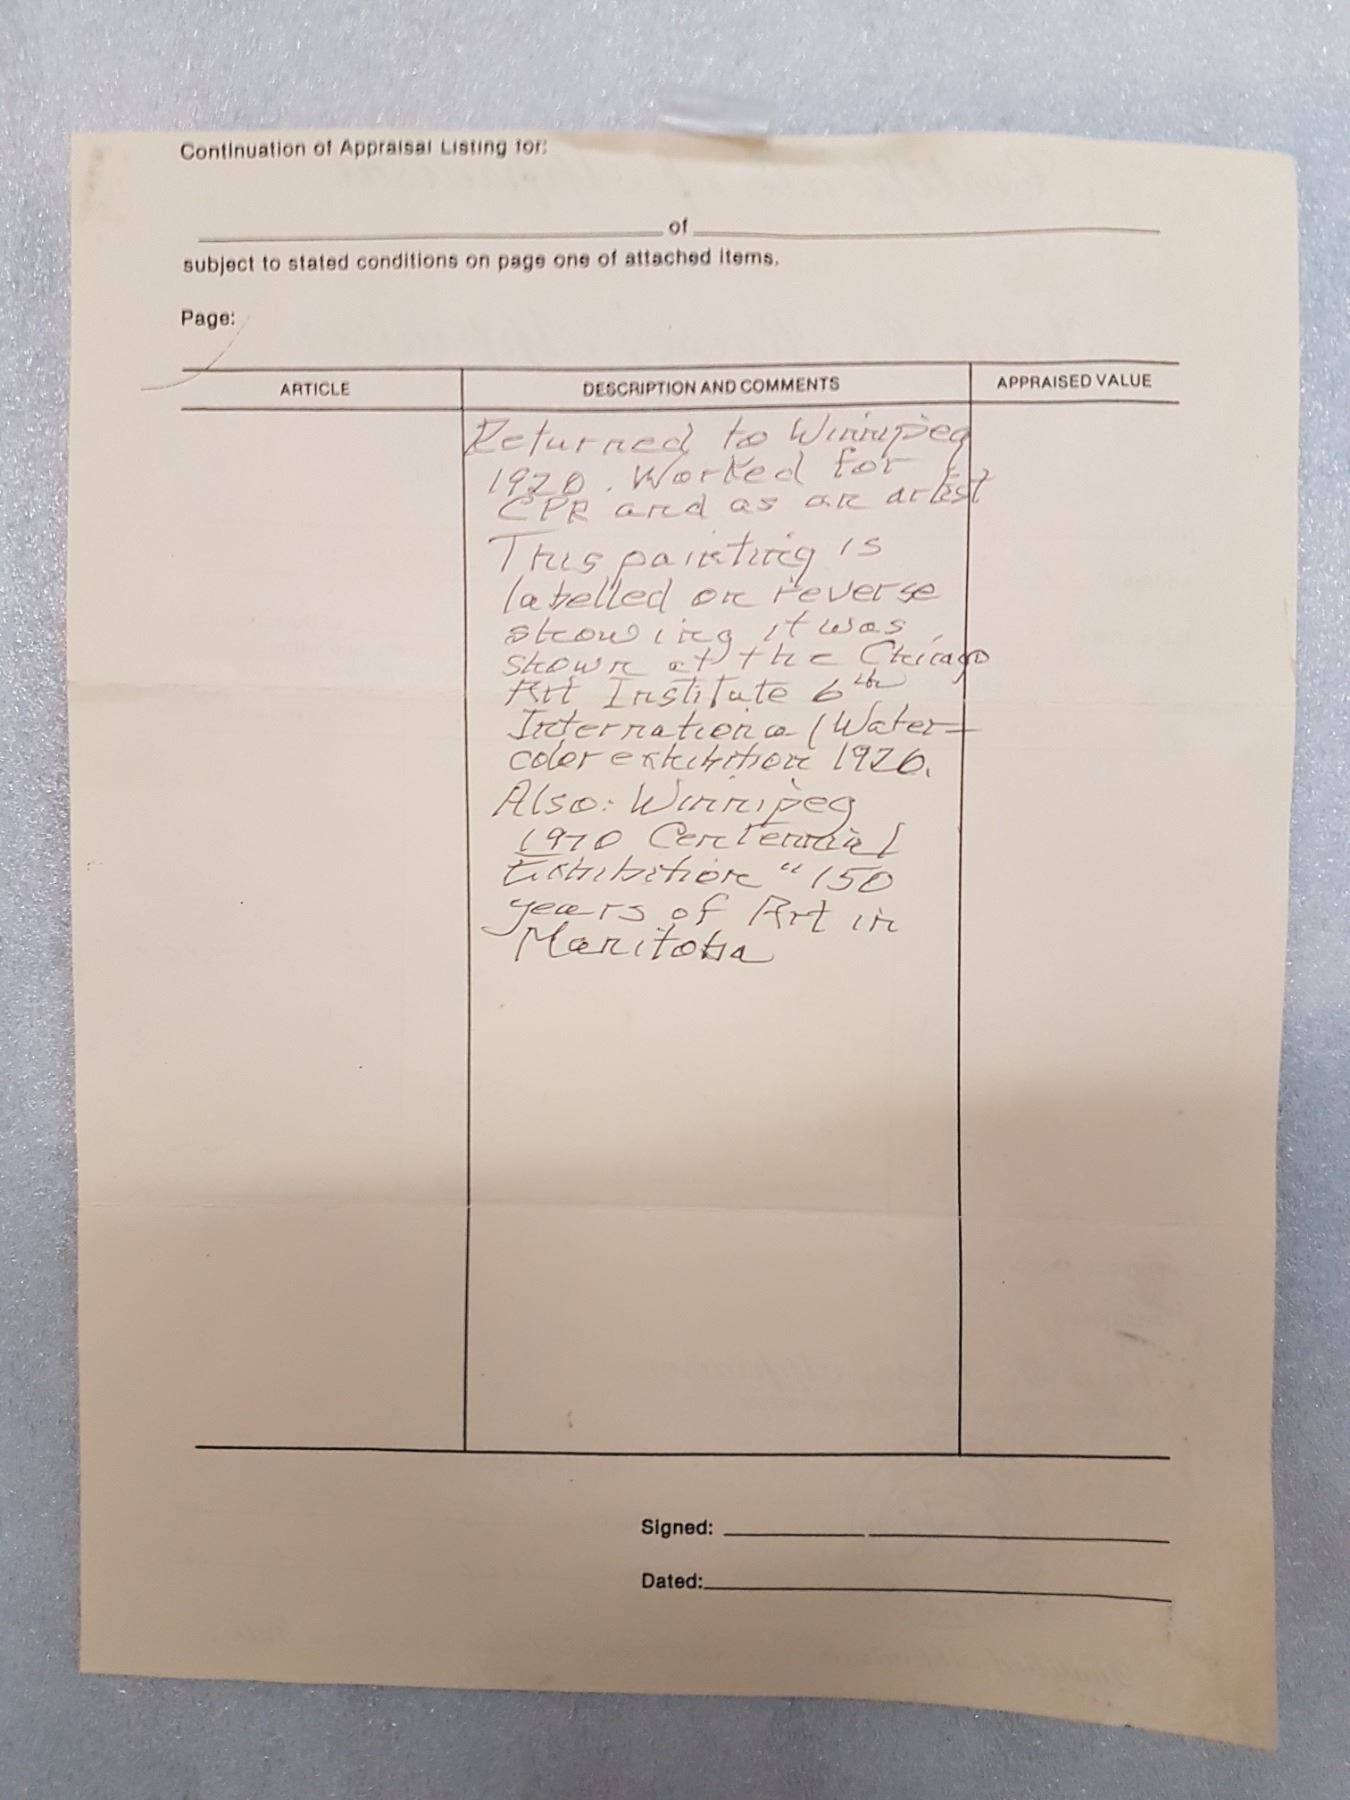 Continuation of Appraisal Listing for:
of
subject to stated conditions on page one of attached items.
Page:
ARTICLE DESCRIPTION AND COMMENTS APPRAISED VALUE
Returned to Winnipeg
1920. Worked for
CPR and as an artist
This painting is
labelled on reverse
showing it was
shown at the Chicago
Art Institute 6th
International Water-
color exhibition 1926.
Also: Winnipeg
1970 Centennial
Exhibition "150
years of Art in
Manitoba
Signed:
Dated: